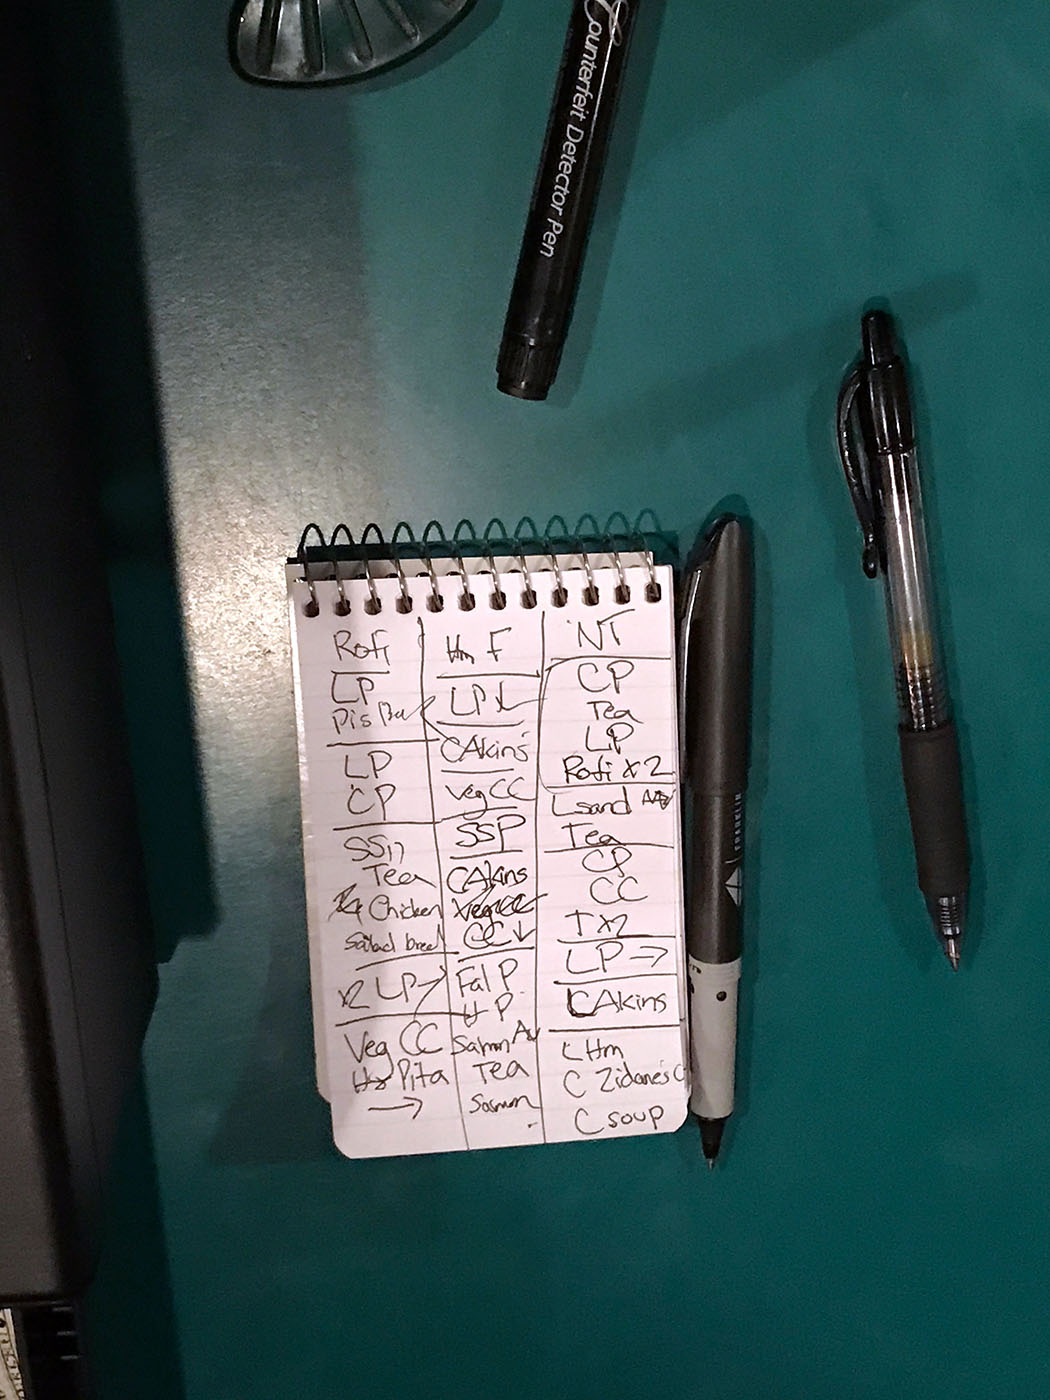 Counterfeit Detector Pen
Roti
LP
LP
CP
Tea
Chicken
Salad bread
x2 LP
Veg CC
Pita
→
Hm F
LP ↓
CAkins
Veg CC
SSP
CAkins
Veg CC
CC ↓
Fal P
H P
Salmn Av
Tea
NT
CP
Tea
LP
Roti x2
L sand
Tea
CP
CC
T x2
LP →
CAkins
L Hm
C Zidane's C
C soup
FRANKLIN